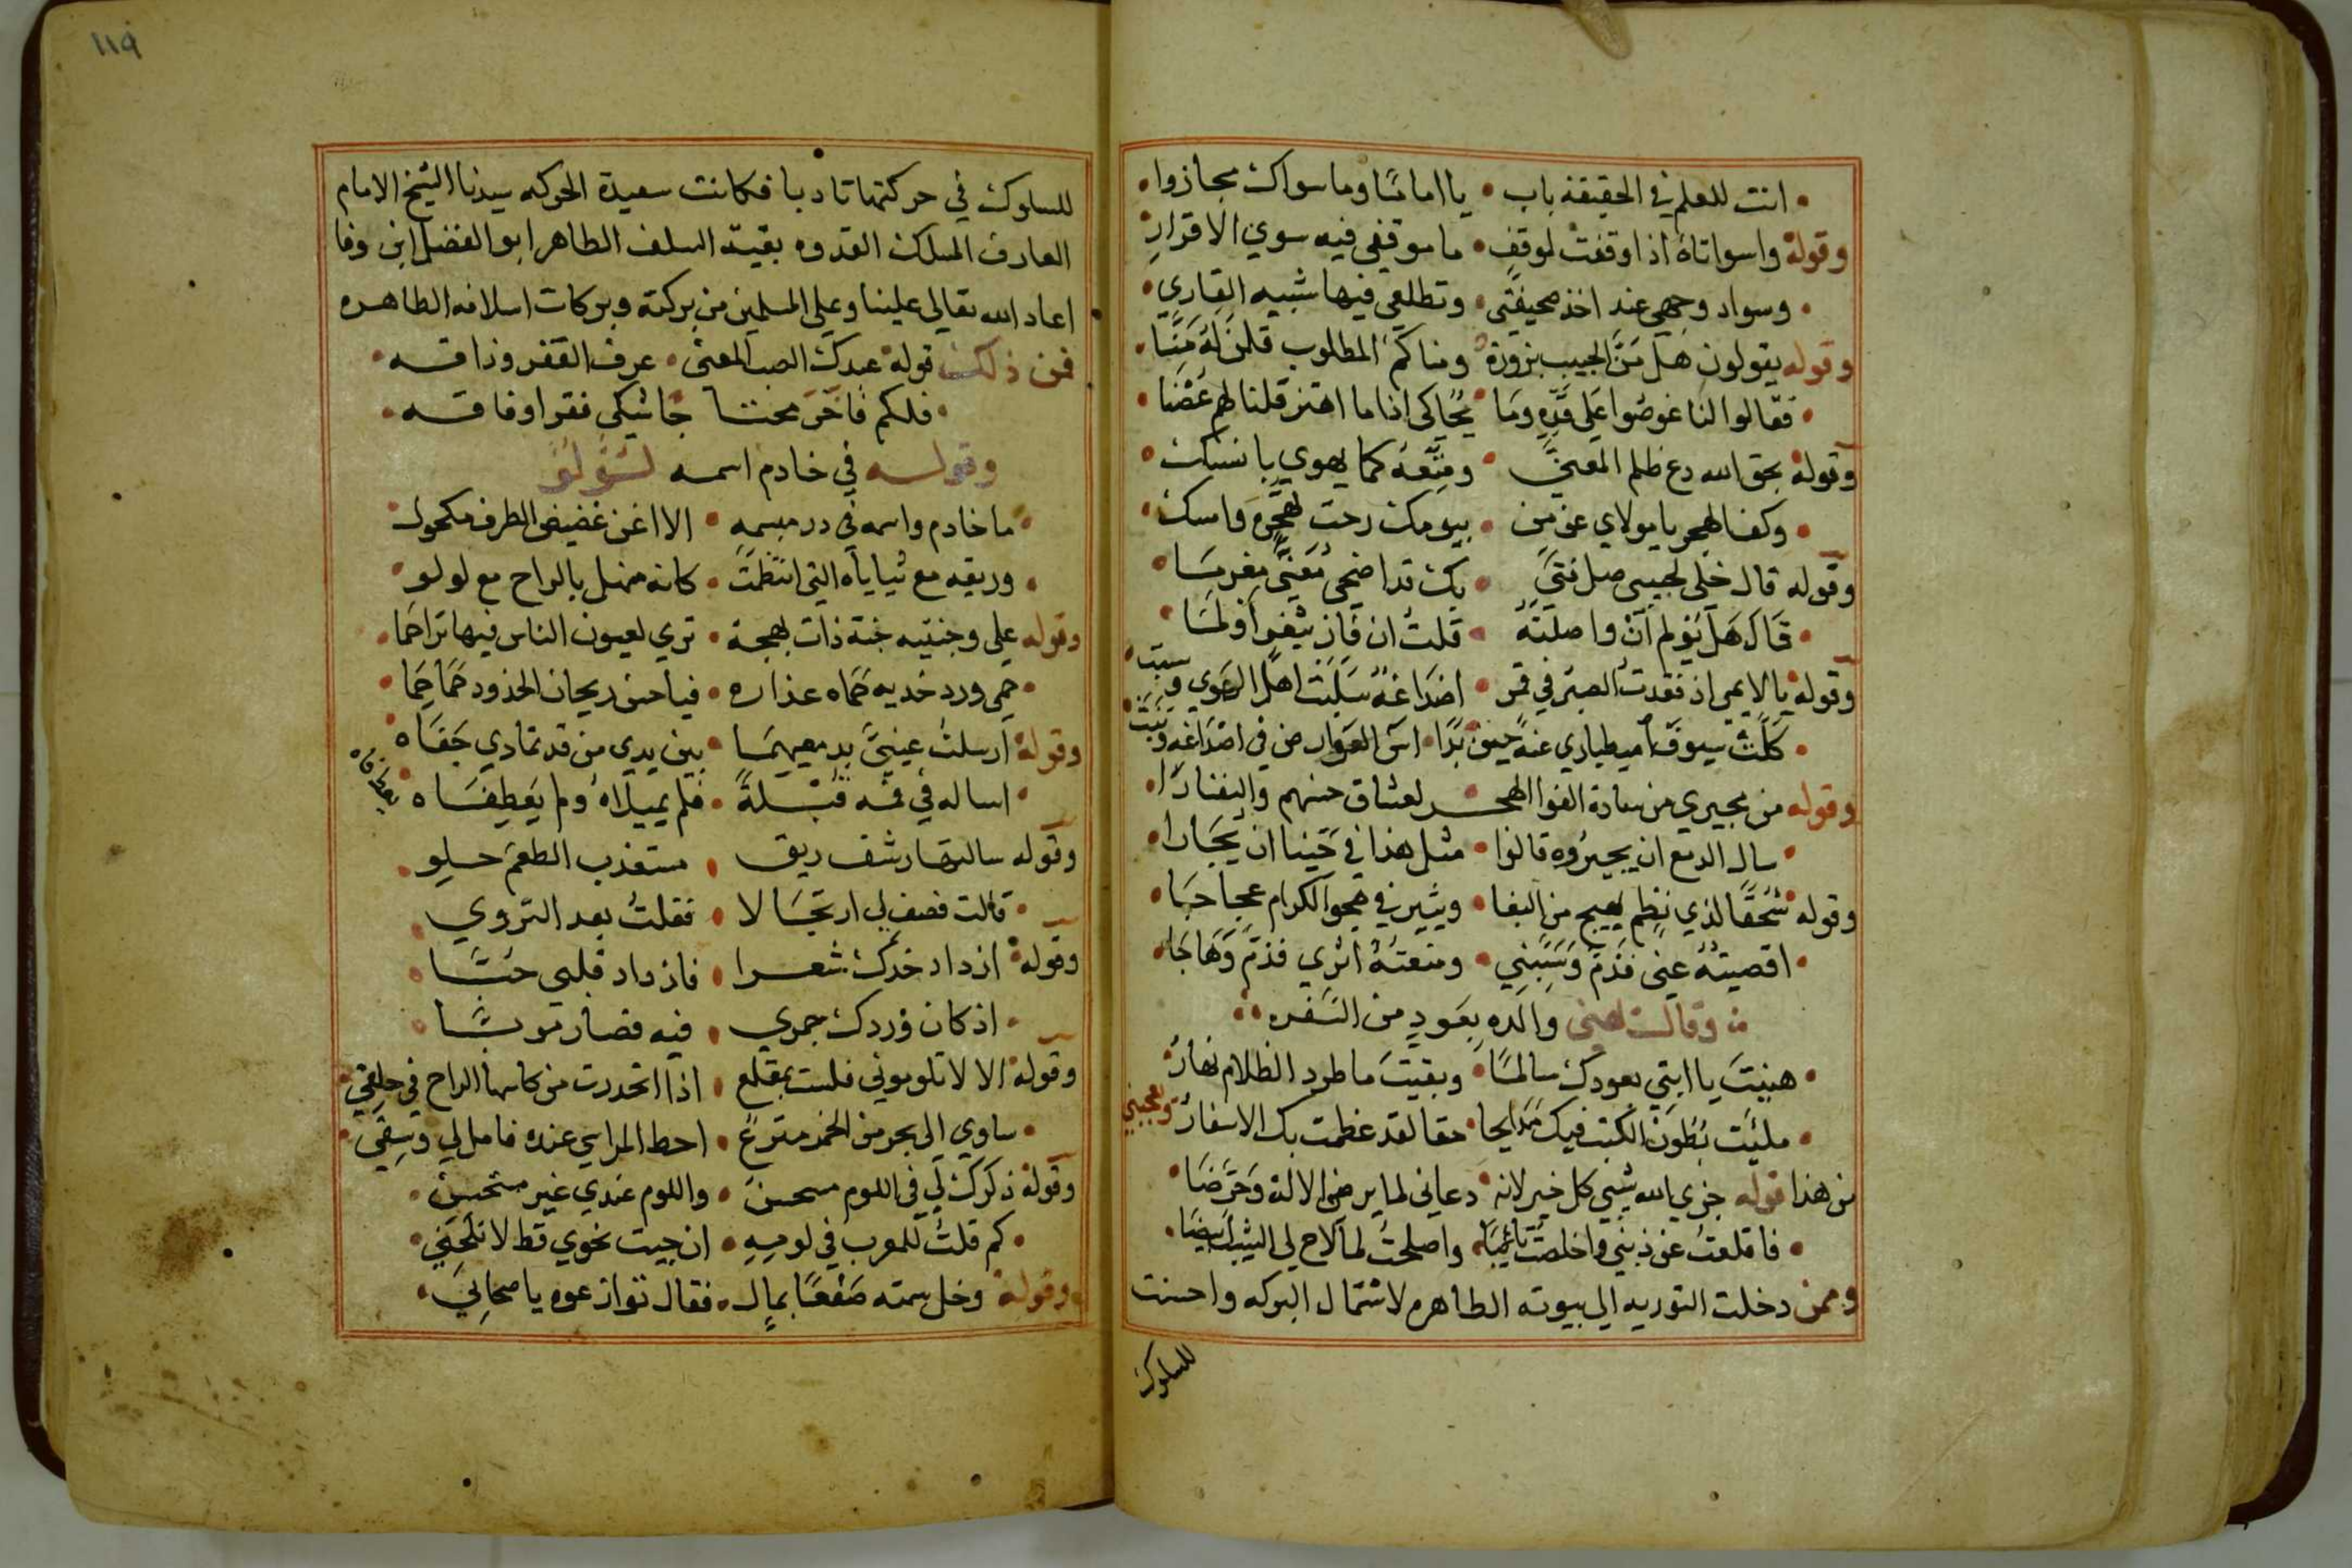 انت للعلم في الحقيقة باب • يا اماما وما سواك مجازوا
وقوله واسواتاه اذا وقفت لموقف • ما موقفي فيه سوي الاقرار
وسواد وجهي عند اخذ صحيفتي • وتطلعي فيها شبيه القاري
وقوله يقولون هل من الحبيب بزورة • ومناكم المطلوب قلن له منا
فقالوا لنا غوصوا على قده وما • يحاكي اذا ما اهتز قلنا لهم غصنا
وقوله بحق الله دع ظلم المعني • ومتعه كما يهوي بانسك
وكف الهجر يا مولاي عن من • بيومك رحت تهجره وامسك
وقوله قال خلي لحبيبي صل فتي • بك قد اضحي معني مغرما
قال هل يولم ان واصلته • قلت ان فاز بثغر اولما
وقوله يا لايمي اذ فقدت الصبر في قمر • اصداغه سلبت اهل الهوي وسبت
كلت سيوف اصطباري عنه حين بدا • اس العوارض في اصداغه ونبت
وقوله من مجيري من سادة الفوا الهجر • لعشاق حسنهم والنفارا
سال الدمع ان يجيروه قالوا • مثل هذا في حينا ان يجارا
وقوله سحقا لذي نظم يهيج من البغا • ويثير في هجو الكرام عجاجا
اقصيته عني فذم وسبني • ومنعته اثري فذم وهاجا
وقالت تهني والده بعود من السفر
هنيت يا ابتي بعودك سالما • وبقيت ما طرد الظلام نهار
مليت بطون الكتب فيك مدايحا • حقا لقد عظمت بك الاسفار ويعجبني
من هذا قوله جزي الله شيبي كل خير لانه • دعاني لما يرضي الاله وحرضا
فاقلعت عن ذنبي واخلصت تايبا • واصلحت لما لاح لي الشيب ابيضا
وممن دخلت التوريه الي بيوته الطاهره لاشتمال البركه واحسنت
للسلوك
١١٩
للسلوك في حركتها تادبا فكانت سعيدة الحركه سيدنا الشيخ الامام
العارف المسلك القدوه بقية السلف الطاهر ابو الفضل ابن وفا
اعاد الله تعالي علينا وعلي المسلمين من بركته وبركات اسلافه الطاهره
فمن ذلك قوله عبدك الصب المعني • عرف الفقر وذاقه
فلكم فاخر محتا جا شكي فقرا وفاقه
وقوله في خادم اسمه لؤلؤ
ما خادم واسمه في در مبسمه • الا اغن غضيض الطرف مكحول
وريقه مع ثناياه التي انتظمت • كانه منهل بالراح مع لولو
وقوله علي وجنتيه جنة ذات بهجة • تري لعيون الناس فيها تزاحما
حمي ورد خديه حماه عذاره • فيا حسن ريحان الخدود حما حما
وقوله ارسلت عيني بدمعيهما • بين يدي من قد تمادي جفاه
اساله في فمه قبلة • فلم يميلاه ولم يعطفاه
وقوله سالتها رشف ريق • مستعذب الطعم حلو
قالت فصف لي ارتجالا • فقلت بعد التروي
وقوله ازداد خدك شعرا • فازداد قلبي حبا
اذ كان وردك جمري • فيه فصار مربا
وقوله الا لا تلوموني فلست بمقلع • اذا انحدرت من كاسها الراح في حلقي
ساوي الي بحر من الخمر مترع • احط المراسي عنده فاملي لي وسقي
وقوله ذكرك لي في اللوم مستحسن • واللوم عندي غير مستحسن
كم قلت للمعرب في لومه • ان جيت نحوي قط لا تلحني
وقوله وخل سمته صفعا بمال • فقال تنازعوه يا صحابي